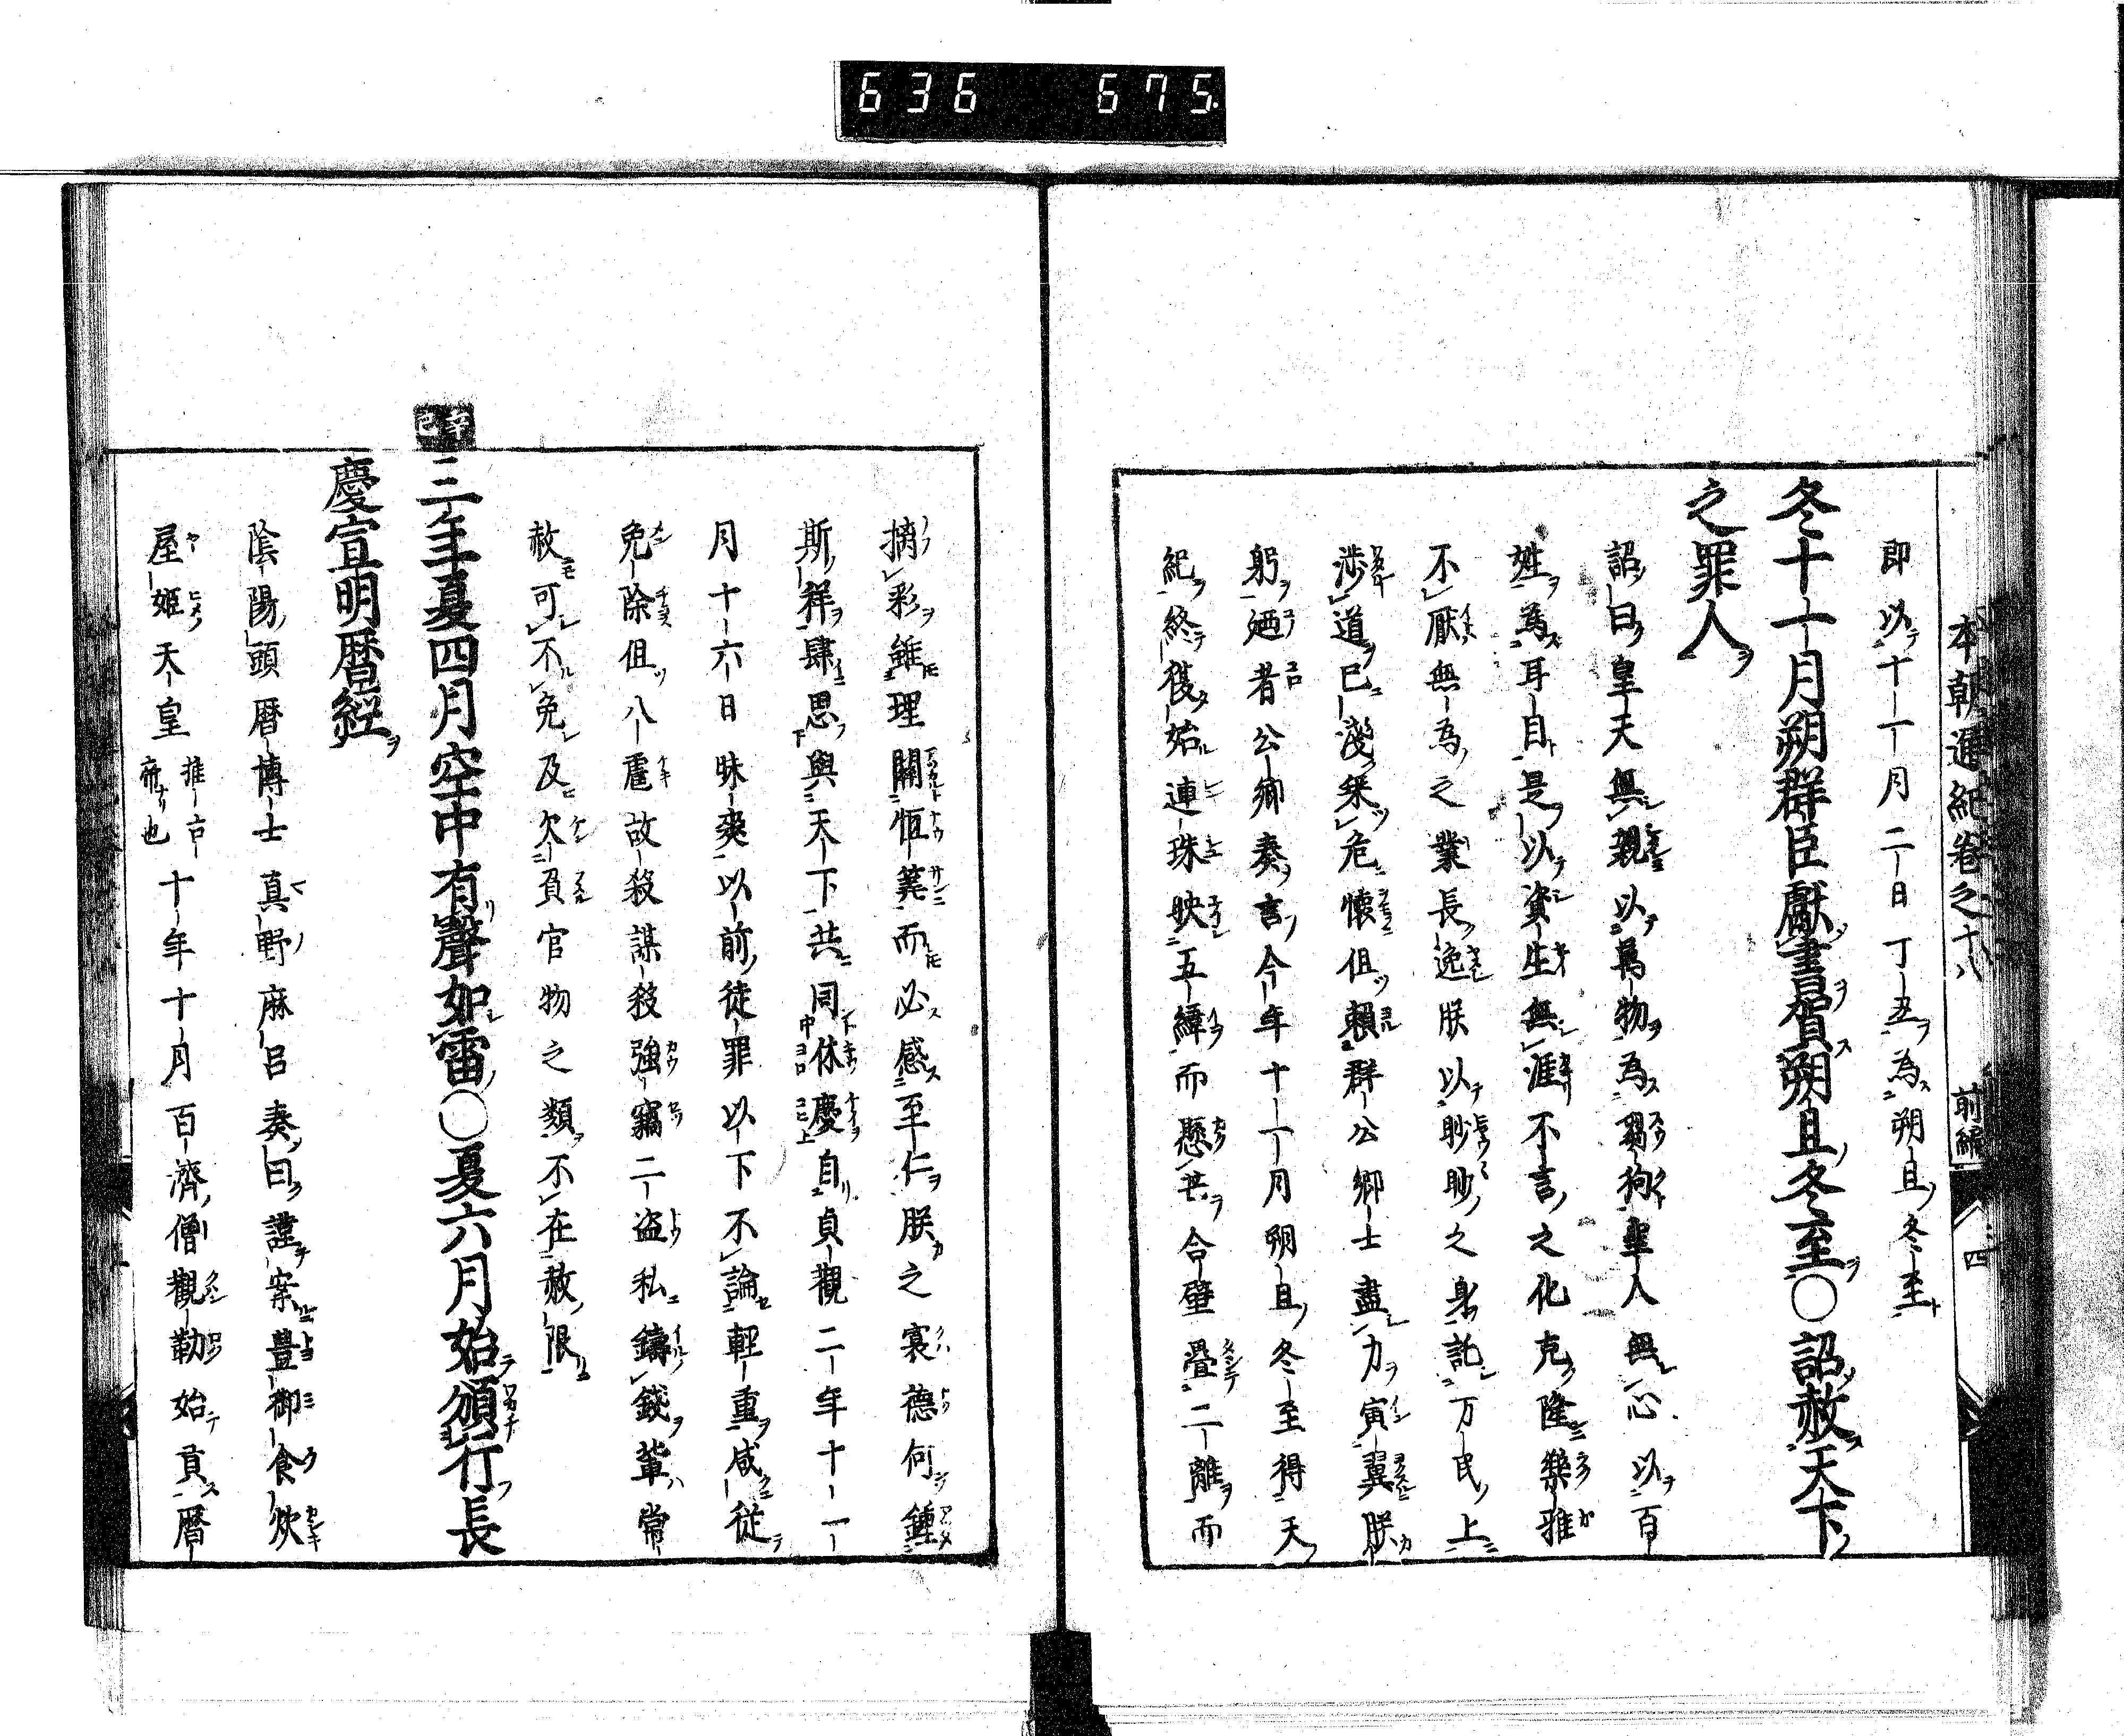 636 675.
本朝通紀卷之十八 前編 四
即以十一月二日丁丑為朔旦冬至
冬十一月朔群臣獻書賀朔旦冬至〇詔赦天下
之罪人
詔曰皇天無親以萬物為芻狗聖人無心以百
姓為耳目是以資生無涯不言之化克隆樂雅
不厭無為之業長逸朕以眇眇之身託万民上
渉道已淺乗危懐但頼群公卿士盡力寅翼朕
躬廼者公卿奏言今年十一月朔旦冬至得天
紀終復始連珠映五緯而懸共合璧疊二離而
摛彩雖理關恒筭而必感至仁朕之寡徳何鍾
斯祥肆思與天下共同休慶自貞觀二年十一
月十六日昧爽以前徒罪以下不論軽重咸従
免除但八虐故殺謀殺強竊二盗私鑄錢輩常
赦可不免及欠負官物之類不在赦限
辛巳
三年夏四月空中有聲如雷〇夏六月始頒行長
慶宣明暦經
陰陽頭暦博士真野麻呂奏曰謹案豊御食炊
屋姫天皇 推古帝也 十年十月百濟僧觀勒始貢暦